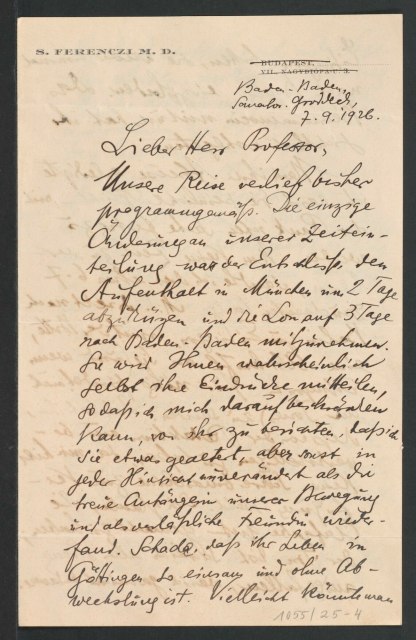 S. FERENCZI M. D.
BUDAPEST,
VII., NAGYDIOFA-U. 3.
Baden-Baden,
Sanator. Groddeck,
7. 9. 1926.
Lieber Herr Professor,
Unsere Reise verlief bisher
programmgemäß. Die einzige
Änderung an unserer Zeitein-
teilung war der Entschluss, den
Aufenthalt in München um 2 Tage
abzukürzen und die Lou auf 3 Tage
nach Baden-Baden mitzunehmen.
Sie wird Ihnen wahrscheinlich
selbst ihre Eindrücke mitteilen,
so daß ich mich darauf beschränken
kann, von ihr zu berichten, daß ich
sie etwas gealtert, aber sonst in
jeder Hinsicht unverändert als die
treue Anhängerin unserer Bewegung
und als verläßliche Freundin wieder-
fand. Schade, daß ihr Leben in
Göttingen so einsam und ohne Ab-
wechslung ist. Vielleicht könnte man
1055/25-4